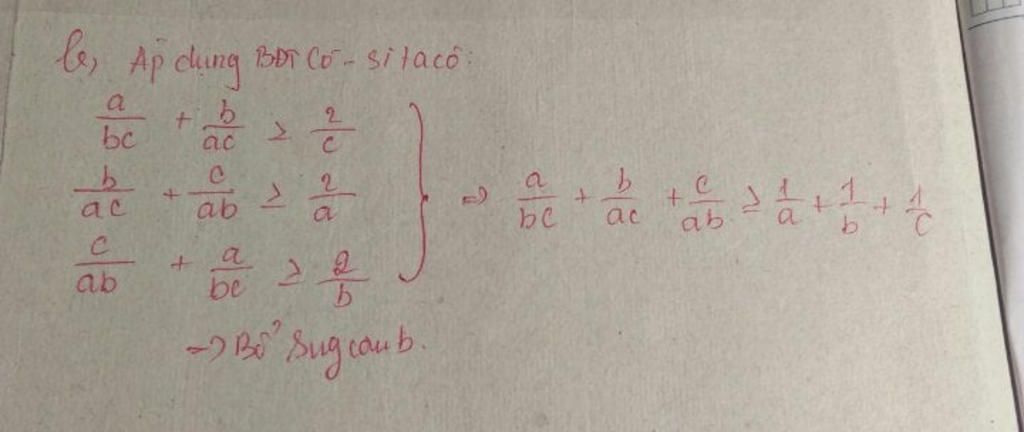 b, Áp dụng BĐT Cô-si ta có:
a/bc + b/ac ≥ 2/c
b/ac + c/ab ≥ 2/a
c/ab + a/bc ≥ 2/b
} => a/bc + b/ac + c/ab ≥ 1/a + 1/b + 1/c
=> Bổ sung câu b.